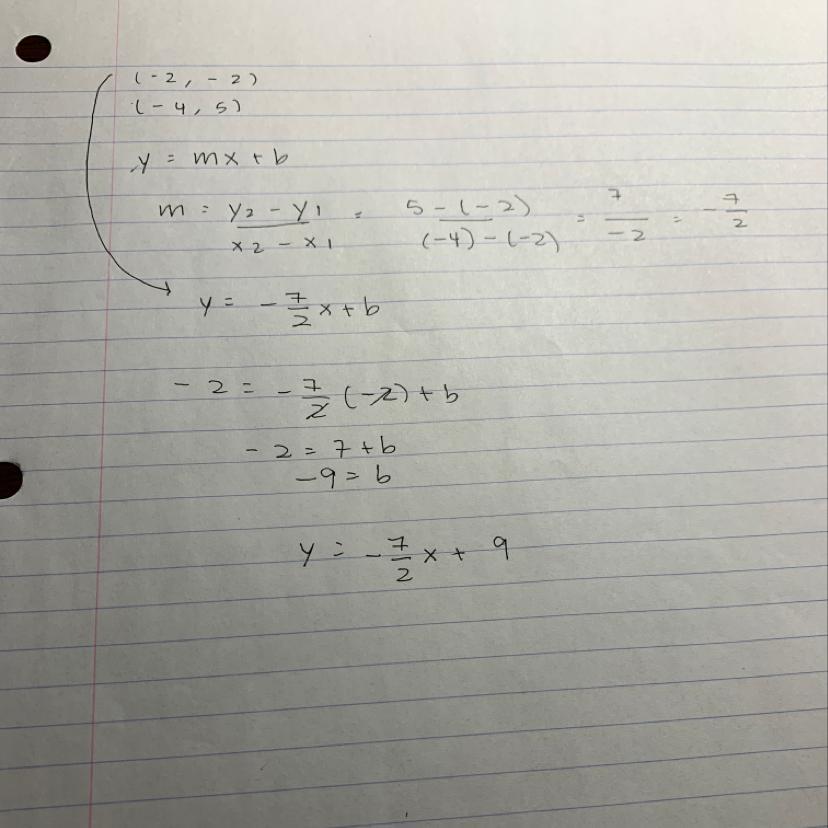 (-2, -2)
(-4, 5)
y = mx + b
m = y2 - y1 / x2 - x1 = 5 - (-2) / (-4) - (-2) = 7 / -2 = - 7/2
y = - 7/2 x + b
- 2 = - 7/2 (-2) + b
- 2 = 7 + b
-9 = b
y = - 7/2 x + 9